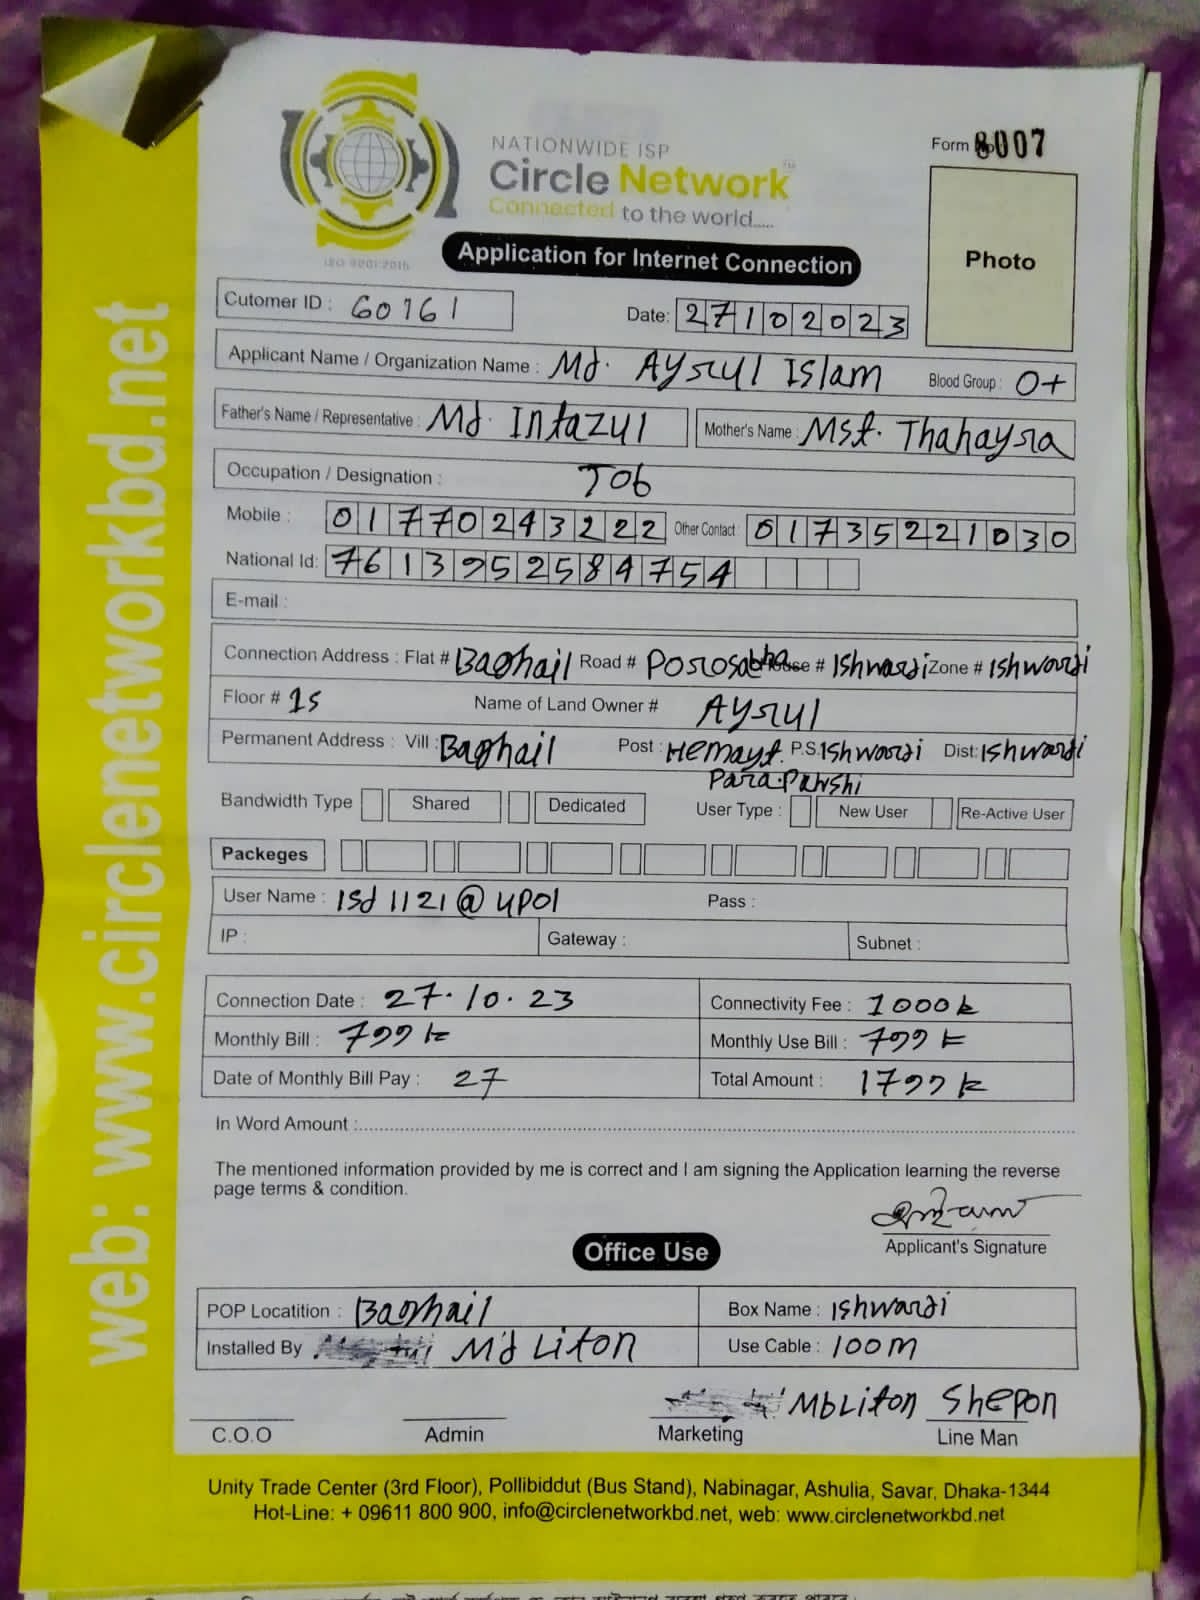 NATIONWIDE ISP
Circle Network™
Connected to the world.....
ISO 9001:2015
Form 8007
Photo
Application for Internet Connection
Cutomer ID : 60761 Date: 27102023
Applicant Name / Organization Name : Md. Aysrul Islam Blood Group : O+
Father's Name / Representative : Md. Intazul Mother's Name : Mst. Thahaysra
Occupation / Designation : Job
Mobile : 01770243222 Other Contact : 01735221030
National Id: 7613952584754
E-mail :
Connection Address : Flat # Baghail Road # Porosabha House # Ishwardi Zone # Ishwardi
Floor # 1s Name of Land Owner # Aysrul
Permanent Address : Vill : Baghail Post : Hemayt P.S. Ishwardi Dist: Ishwardi
Para. Pakshi
Bandwidth Type Shared Dedicated User Type : New User Re-Active User
Packeges
User Name : Isd 1121@up01 Pass :
IP : Gateway : Subnet :
Connection Date : 27.10.23 Connectivity Fee : 1000k
Monthly Bill : 799 k Monthly Use Bill : 799 k
Date of Monthly Bill Pay : 27 Total Amount : 1799 k
In Word Amount :
The mentioned information provided by me is correct and I am signing the Application learning the reverse
page terms & condition.
Applicant's Signature
Office Use
POP Locatition : Baghail Box Name : Ishwardi
Installed By Md Liton Use Cable : 100M
Mb Liton Shepon
C.O.O Admin Marketing Line Man
Unity Trade Center (3rd Floor), Pollibiddut (Bus Stand), Nabinagar, Ashulia, Savar, Dhaka-1344
Hot-Line: + 09611 800 900, info@circlenetworkbd.net, web: www.circlenetworkbd.net
web: www.circlenetworkbd.net